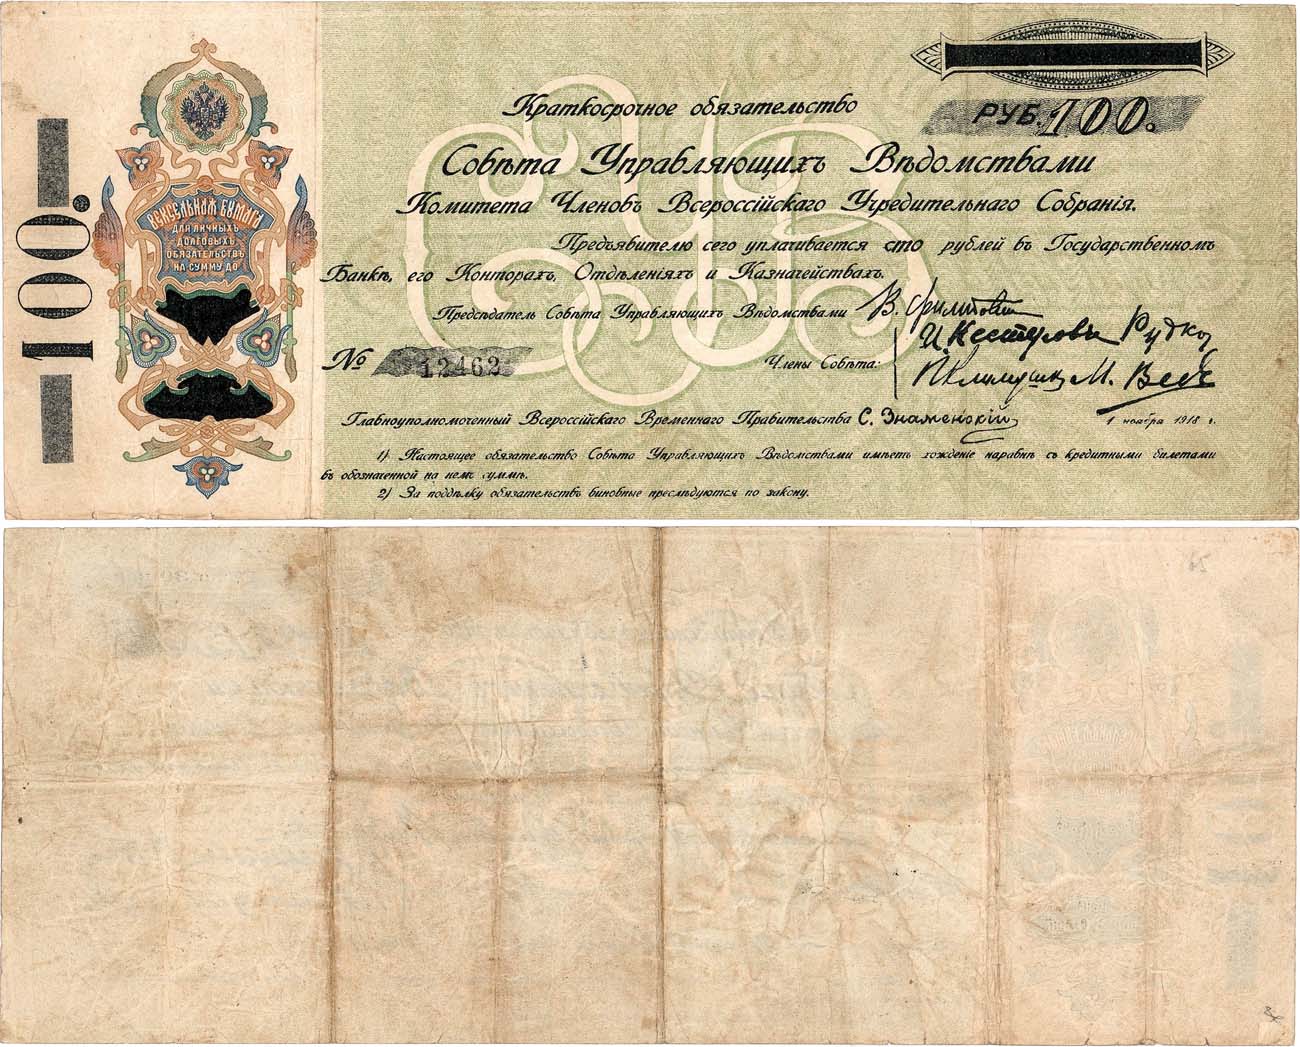 100.
ВЕКСЕЛЬНАЯ БУМАГА
ДЛЯ ЛИЧНЫХЪ
ДОЛГОВЫХЪ
ОБЯЗАТЕЛЬСТВЪ
НА СУММУ ДО
СУВ
Краткосрочное обязательство
РУБ. 100.
Совѣта Управляющихъ Вѣдомствами
Комитета Членовъ Всероссійскаго Учредительнаго Собранія.
Предъявителю сего уплачивается сто рублей въ Государственномъ
Банкѣ, его Конторахъ, Отдѣленіяхъ и Казначействахъ.
Предсѣдатель Совѣта Управляющихъ Вѣдомствами В. Филипповскій
№ 12462
Члены Совѣта: И. Нестеровъ Рудко
П. Климушкинъ М. Веденяпинъ
Главноуполномоченный Всероссійскаго Временнаго Правительства С. Знаменскій
1 ноября 1918 г.
1) Настоящее обязательство Совѣта Управляющихъ Вѣдомствами имѣетъ хожденіе наравнѣ съ кредитными билетами
въ обозначенной на немъ суммѣ.
2) За поддѣлку обязательствъ виновные преслѣдуются по закону.